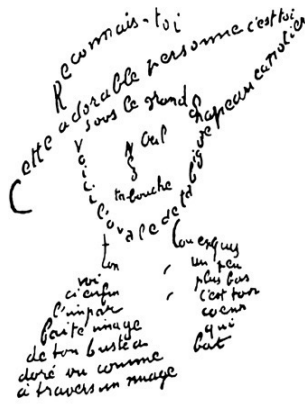 Reconnais-toi
Cette adorable personne c'est toi
sous le grand chapeau canotier
Œil
Nez
ta bouche
Voici l'ovale de ta figure
ton
cou exquis
voi
ci enfin
l'impar
faite image
de ton buste a
doré vu comme
à travers un nuage
un peu
plus bas
c'est ton
cœur
qui
bat